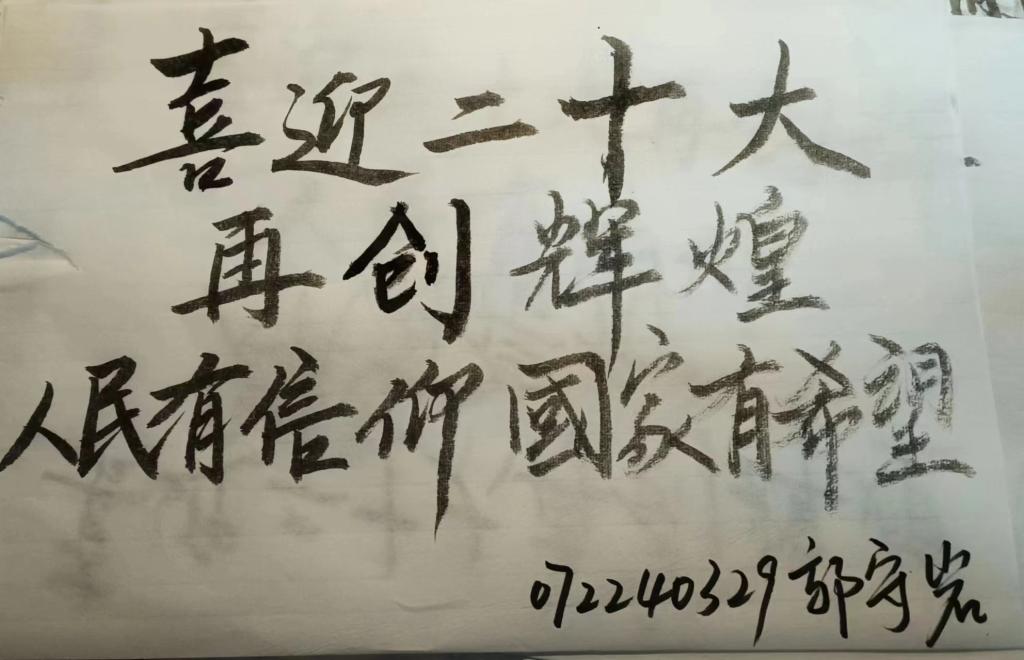 喜迎二十大
再创辉煌
人民有信仰國家有希望
072240329郭守岩